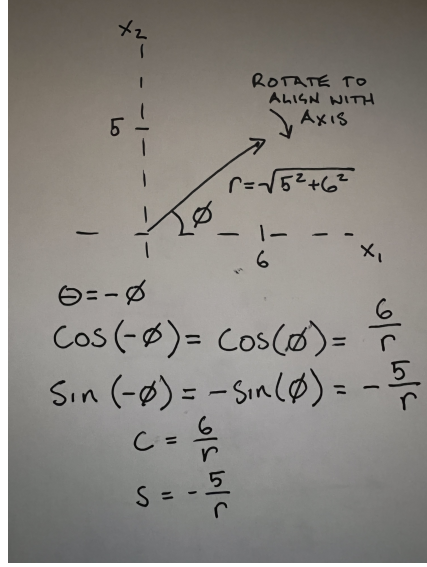 x₂
ROTATE TO
ALIGN WITH
AXIS
5
r=√5²+6²
Ø
6
x₁
θ=-Ø
Cos(-Ø)= Cos(Ø)= 6/r
Sin(-Ø)= -Sin(Ø)= -5/r
C = 6/r
S = -5/r